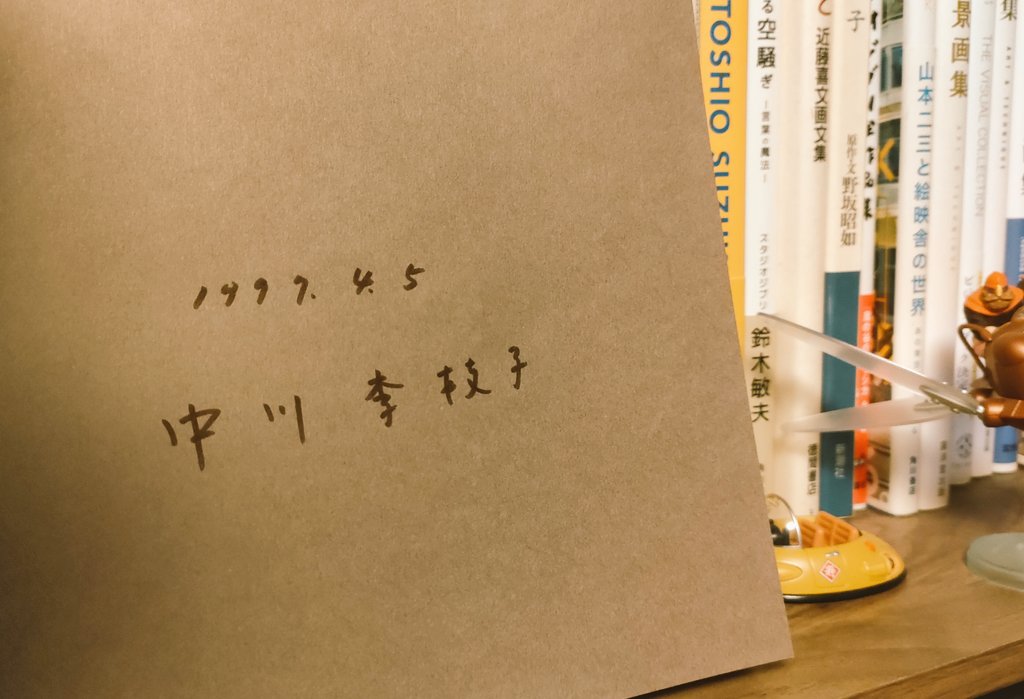 1997. 4. 5
中川 李枝子
TOSHIO SUZU
る空騒ぎ
―言葉の魔法―
スタジオジブリ
鈴木敏夫
近藤喜文画文集
徳間書店
子
原作・文 野坂昭如
新潮社
山本二三と絵映舎の世界
角川書店
景画集
THE VISUAL COLLECTION
集